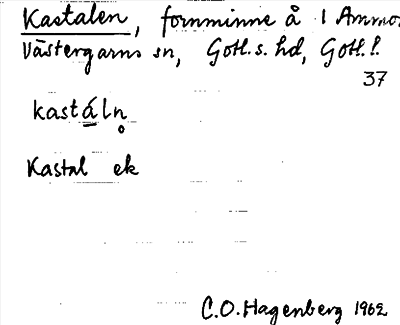 Kastalen, fornminne å 1 Ammor
Västergarns sn, Gotl. s. hd, Gotl. l.
37
kastáln̥
Kastal ek
C.O. Hagenberg 1962